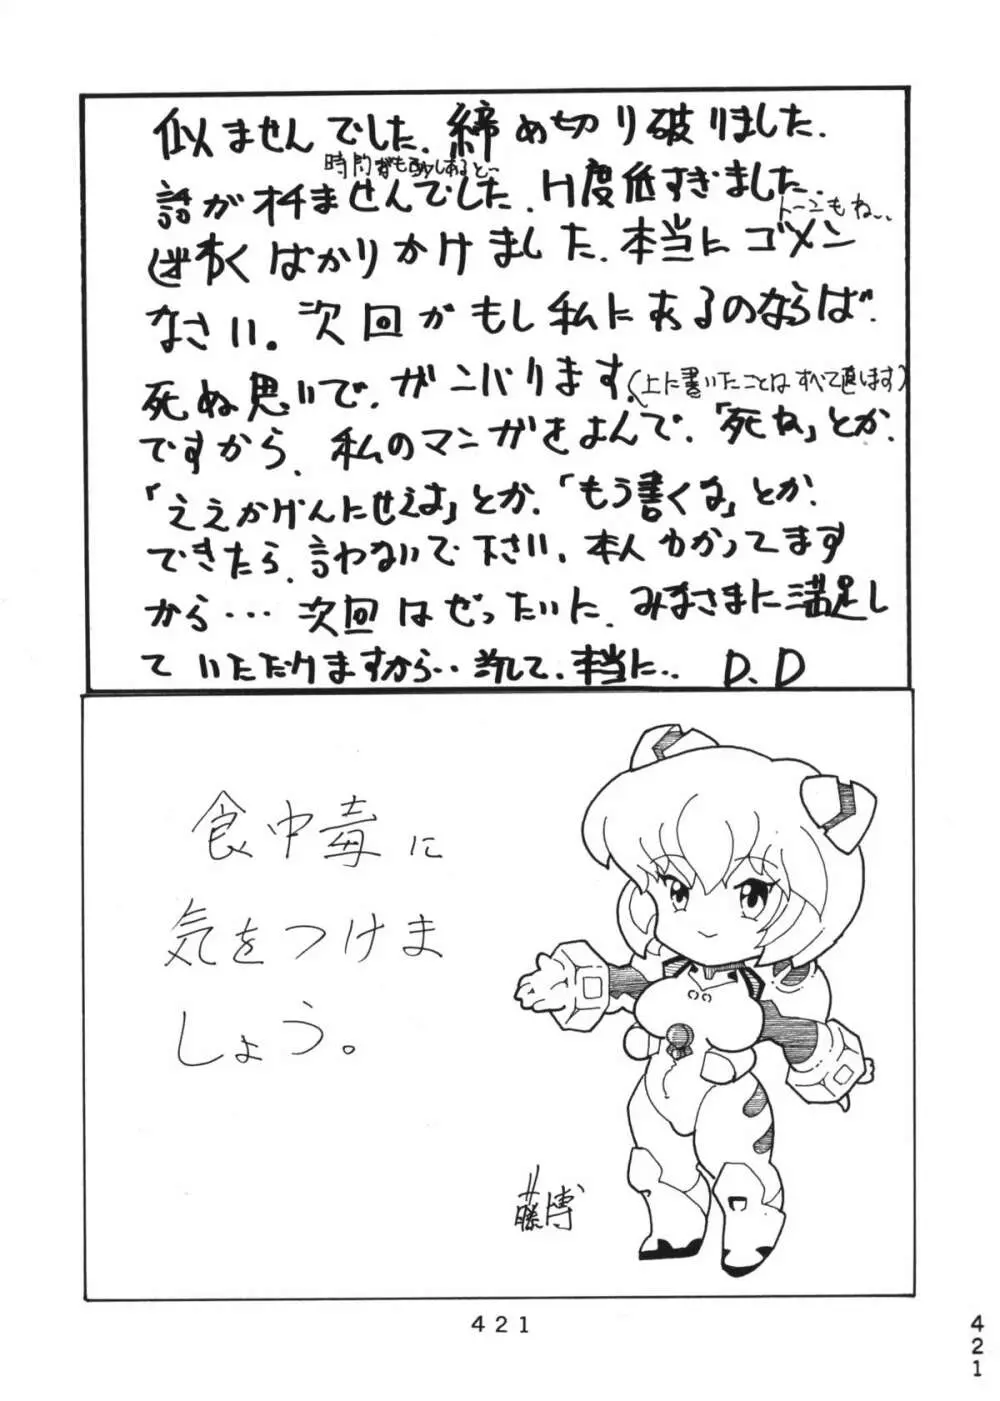 似ませんでした、締め切り破りました、
時間
話がオチませんでした、H度低すぎました、
トーンもね、、
迷惑ばかりかけました、本当にゴメン
なさい。次回がもし私にあるのならば、
死ぬ思いで、ガンバります、(上に書いたことはすべて直します)
ですから、私のマンガをよんで、「死ね」とか、
「ええかげんにせえよ」とか、「もう書くな」とか、
できたら、言わないで下さい、本人わかってます
から・・・次回はぜったいに、みなさまに満足し
ていただけますから・・ 本当に・・ D.D
食中毒に
気をつけま
しょう。
藤博
421
421